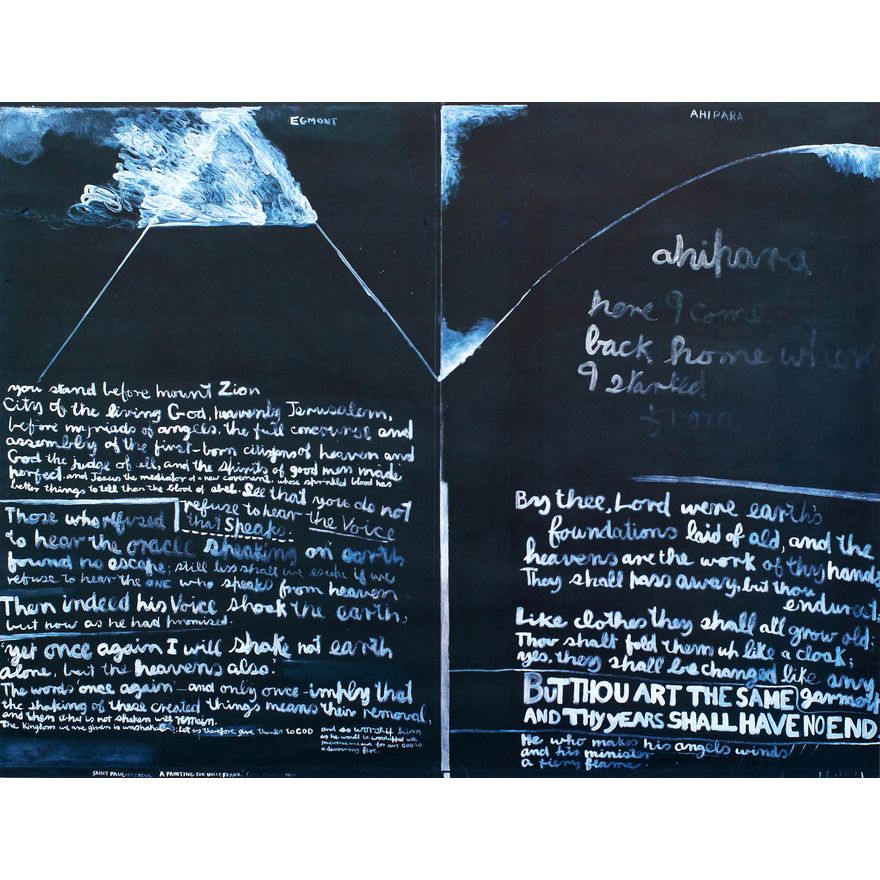 EGMONT
you stand before mount Zion
City of the living God, heavenly Jerusalem,
before myriads of angels, the full concourse and
assembly of the first-born citizens of heaven and
God the judge of all, and the spirits of good men made
perfect. and Jesus the mediator of a new covenant, whose sprinkled blood has
better things to tell than the blood of abel. See that you do not
refuse to hear the Voice
that Speaks.
Those who refused
to hear the oracle speaking on earth
found no escape; still less shall we escape if we
refuse to hear the ONE who speaks from heaven
Then indeed his Voice shook the earth,
but now as he had promised.
'yet once again I will shake not earth
alone, but the heavens also.'
The words 'once again – and only once – imply that
the shaking of these created things means their removal,
and then what is not shaken will remain.
The Kingdom we are given is unshakable; let us therefore give thanks to GOD
and so worship him
as he would be worshipped with
reverence and awe for our GOD is
a devouring fire.
SAINT PAUL A PAINTING FOR UNCLE FRANK.
AHIPARA
ahipara
here I come
back home where
I started
from
By thee, Lord were earth's
foundations laid of old, and the
heavens are the work of thy hands
They shall pass away, but thou
endurest;
Like clothes they shall all grow old;
Thou shalt fold them up like a cloak;
yes, they shall be changed like any
garment
BUT THOU ART THE SAME
AND THY YEARS SHALL HAVE NO END.
He who makes his angels winds
and his minister
a fiery flame